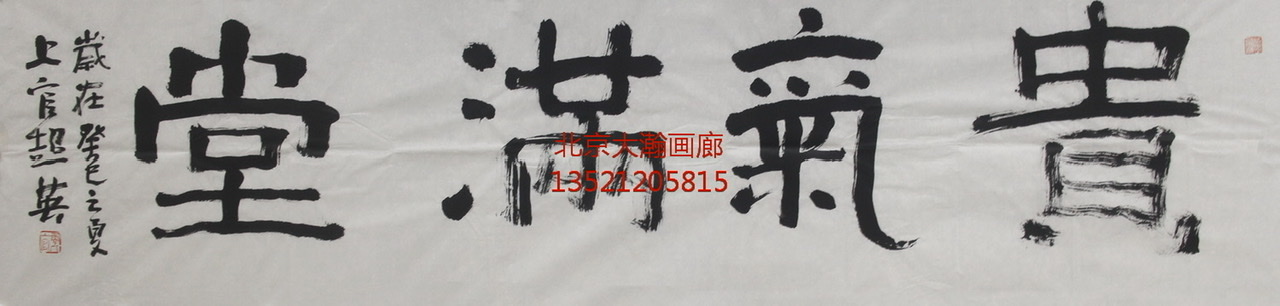 貴氣滿堂
歲在癸巳之夏
上官超英
北京大瀚画廊
13521205815